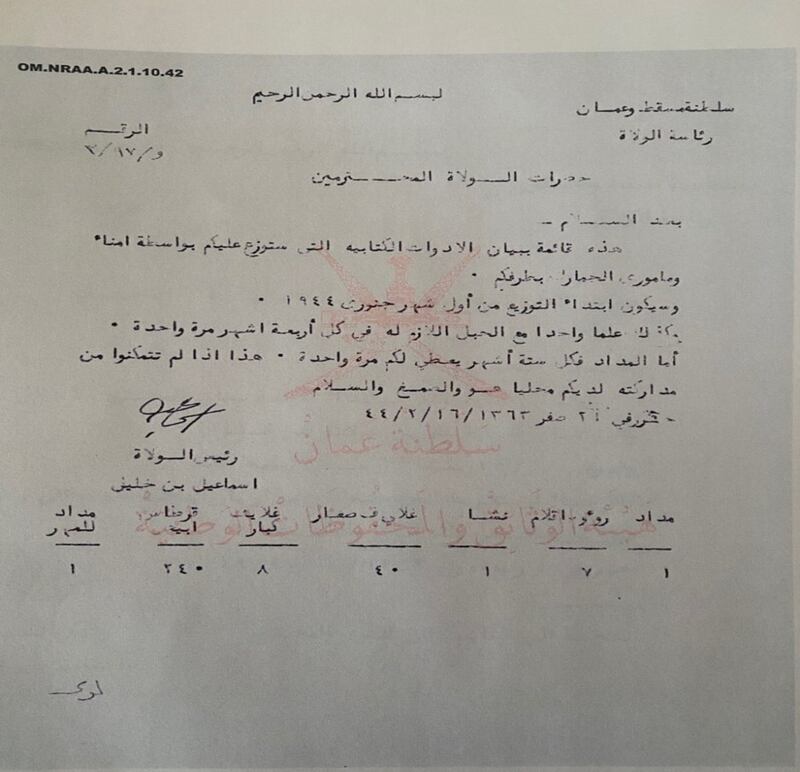 OM.NRAA.A.2.1.10.42
لبسم الله الرحمن الرحيم
سلطنة مسقط وعمان
رئاسة الولاة
الرقم
و/١٧/٣
حضرات الولاة المحترمين
بعد السلام -
هذه قائمة ببيان الادوات الكتابيه التي ستوزع عليكم بواسطة امناء
وماموري الجمارك بطرفكم ٠
وسيكون ابتداء التوزيع من أول شهر جنوري ١٩٤٤ ٠
علما واحدا مع الحبل اللازم له في كل أربعة اشهر مرة واحدة ٠
أما المداد فكل ستة أشهر يعطي لكم مرة واحدة ٠ هذا اذا لم تتمكنوا من
مداركته لديكم محليا هو والصمغ والسلام
صفر ١٣٦٣/٢/١٦/٤٤
رئيس الولاة
اسماعيل بن خليل
مداد رؤوس اقلام نشا غلايف صغار غلايف كبار قرطاس ابيض مداد للمهر
١ ٧ ١ ٤٠ ٨ ٢٤٠ ١
سلطنة عمان
هيئة الوثائق والمحفوظات الوطنية